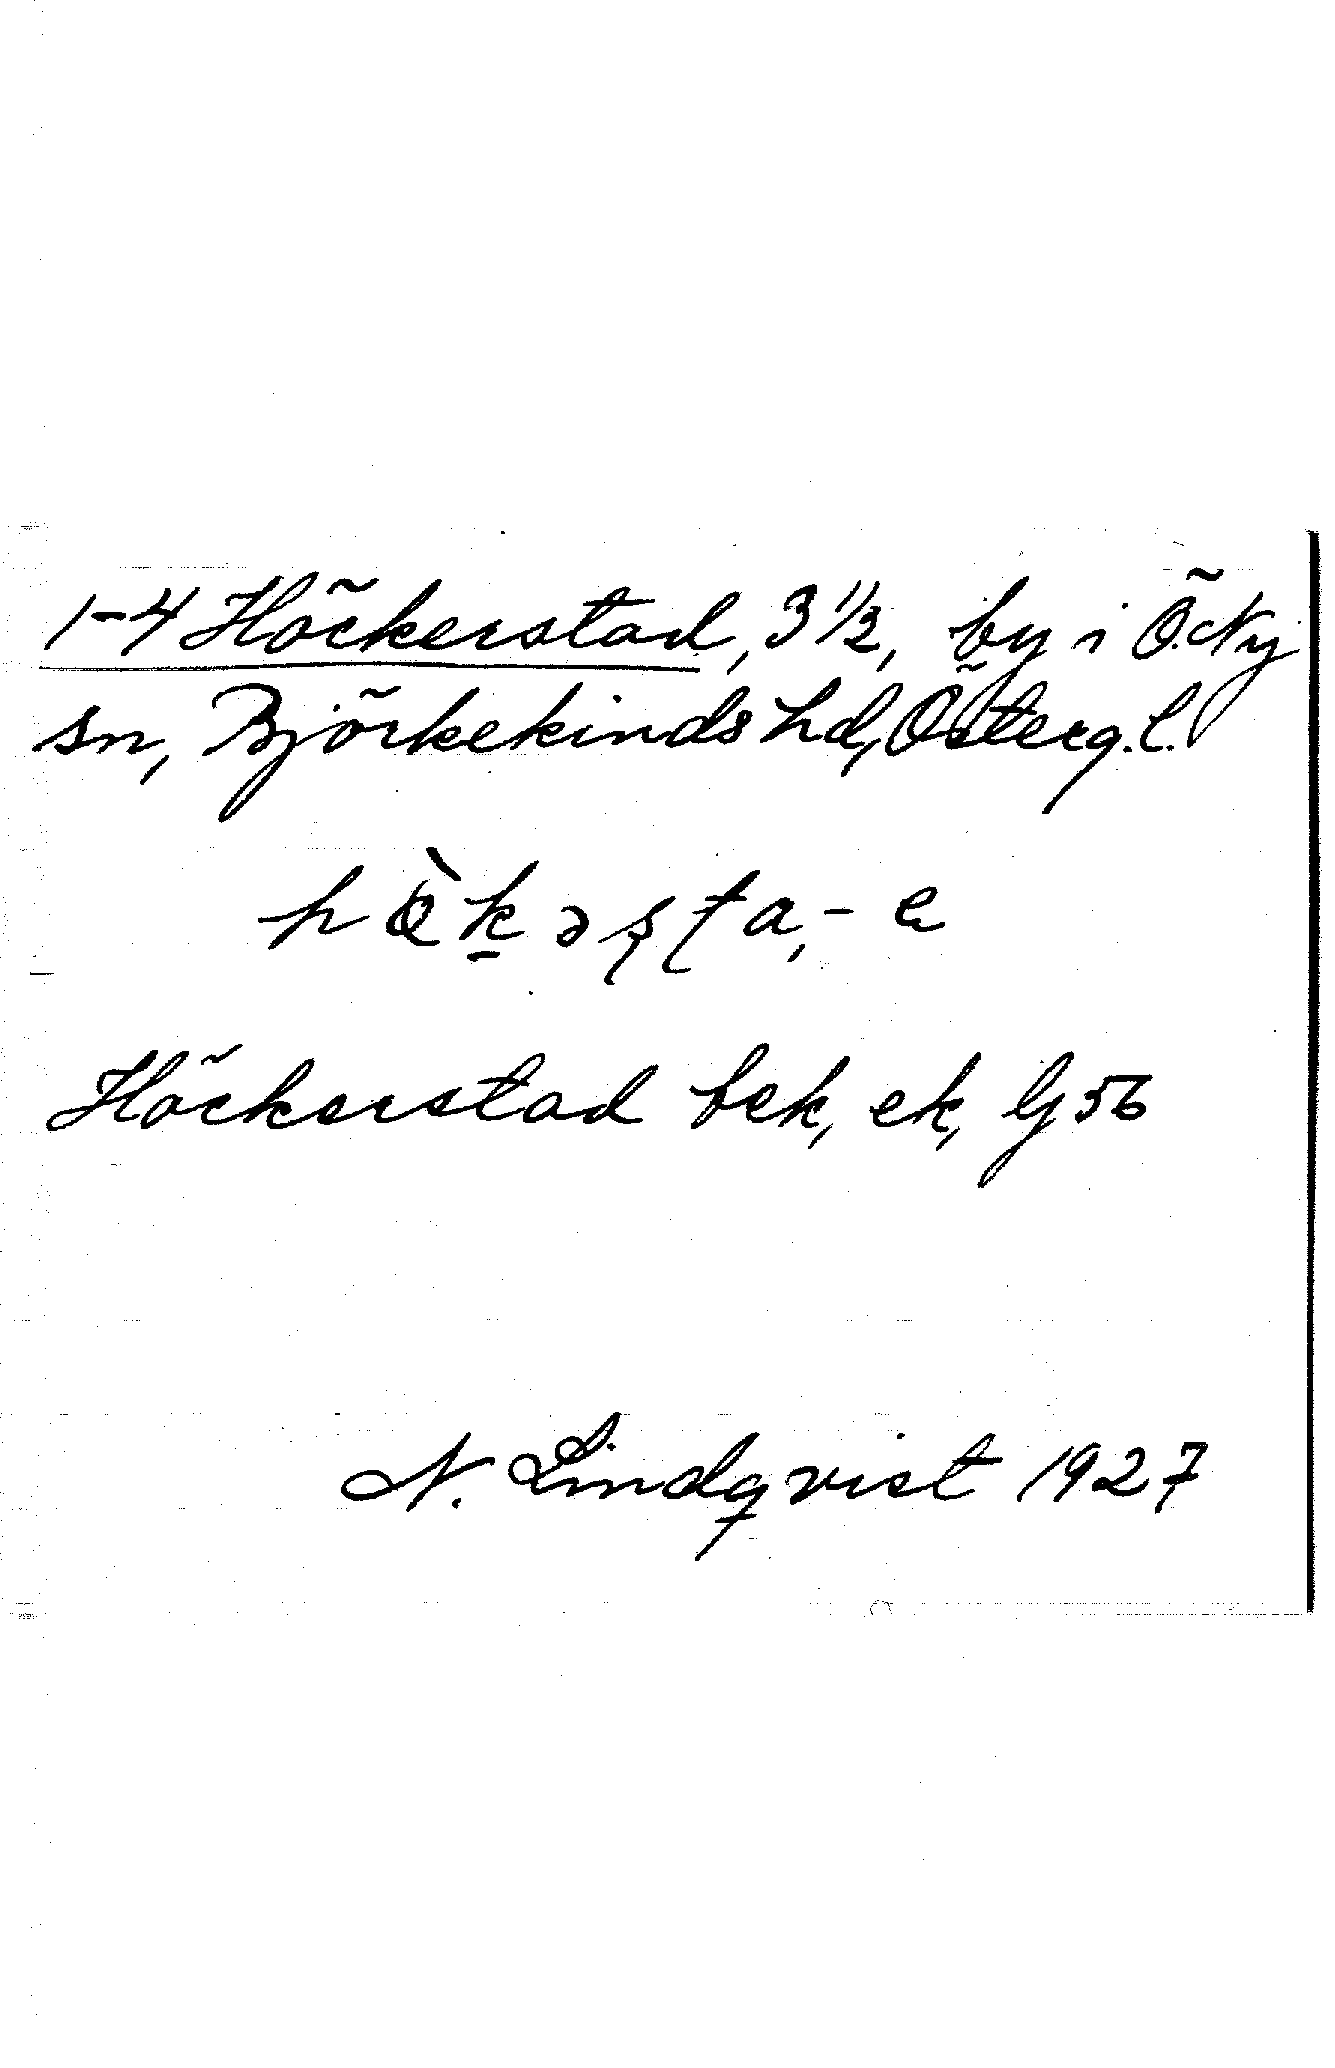 1-4 Höckerstad, 3 1/2, by i Ö. Ny
sn, Björkekinds hd, Österg. l.
Höckerstad bek, ek, Gj 56
N. Lindqvist 1927